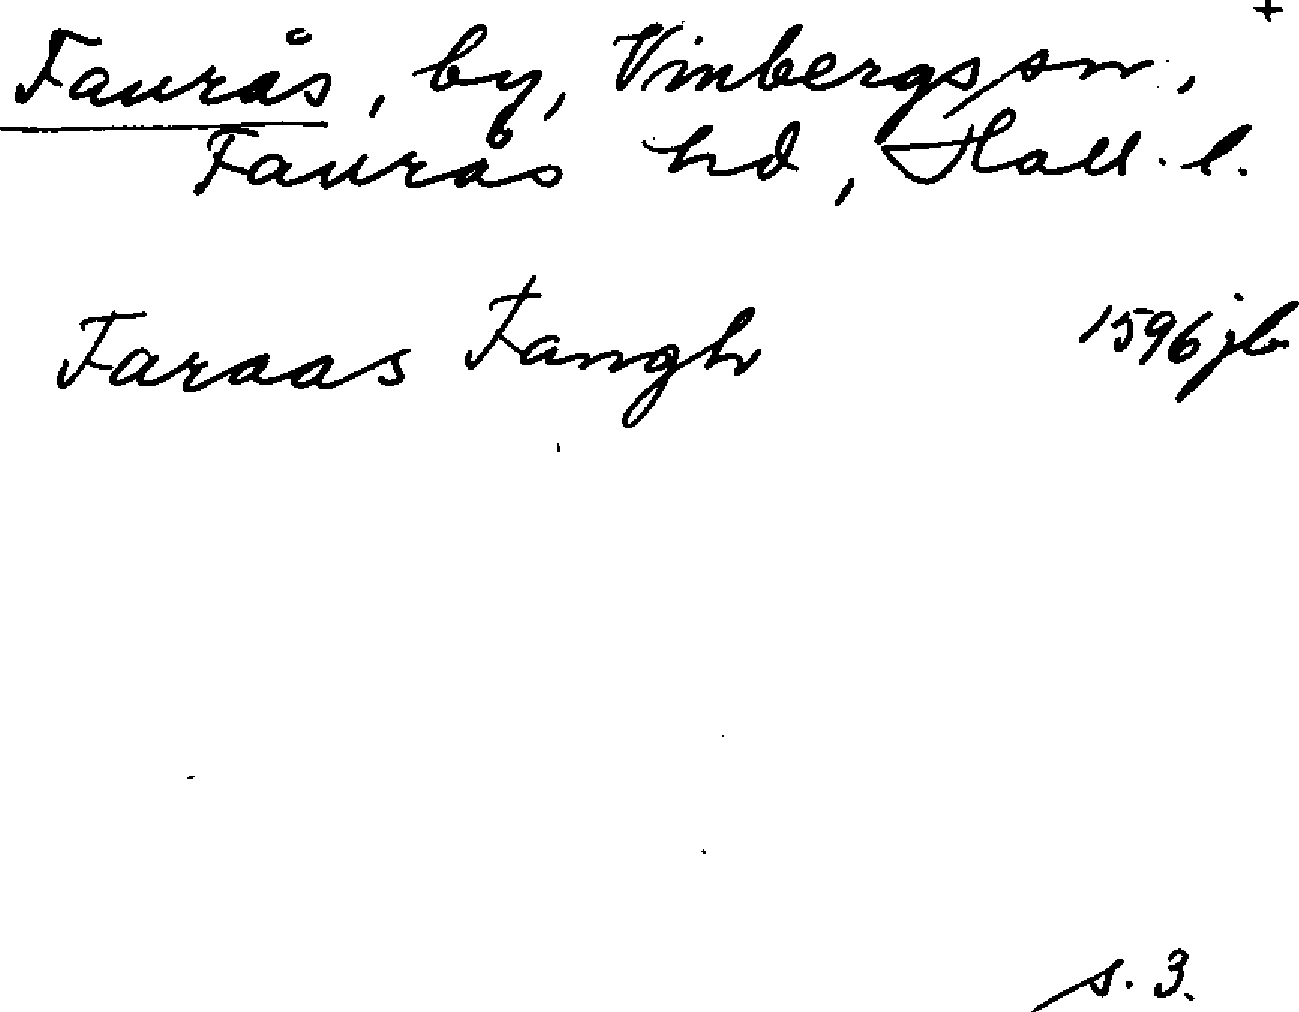 +
Faurås, by, Vinbergs sn,
Faurås hd, Hall. l.
Faraas Fangh 1596 jb
s. 3.